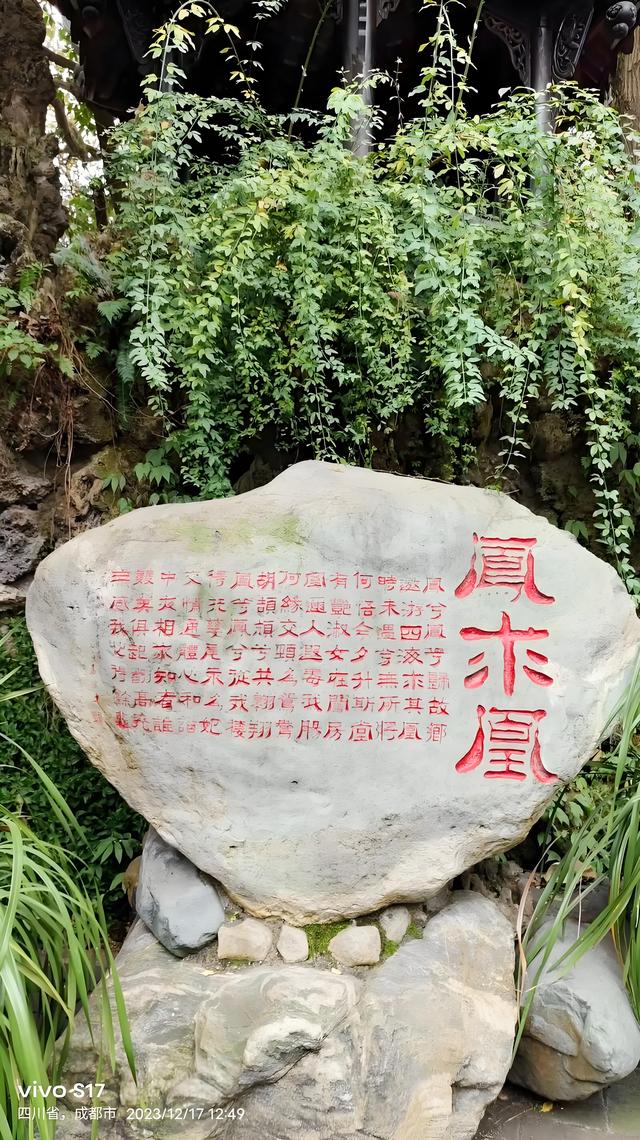 鳳求凰
鳳兮鳳兮歸故鄉
遨游四海求其凰
時未遇兮無所將
何悟今夕升斯堂
有艷淑女在閨房
室邇人遐毒我腸
何緣交頸為鴛鴦
胡頡頏兮共翱翔
鳳兮鳳兮從我棲
得托孳尾永為妃
交情通體心和諧
中夜相從知者誰
雙翼俱起翻高飛
無感我
vivo S17
四川省，成都市 2023/12/17 12:49